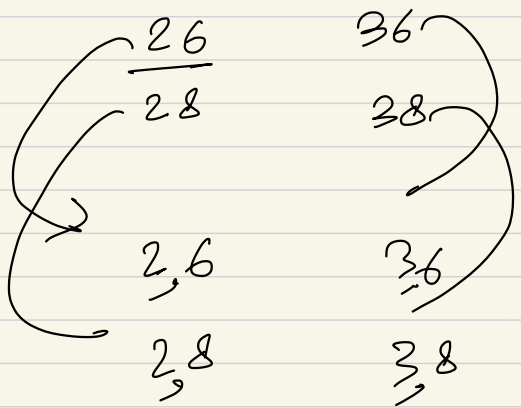 26 36
28 38
2,6 3,6
2,8 3,8